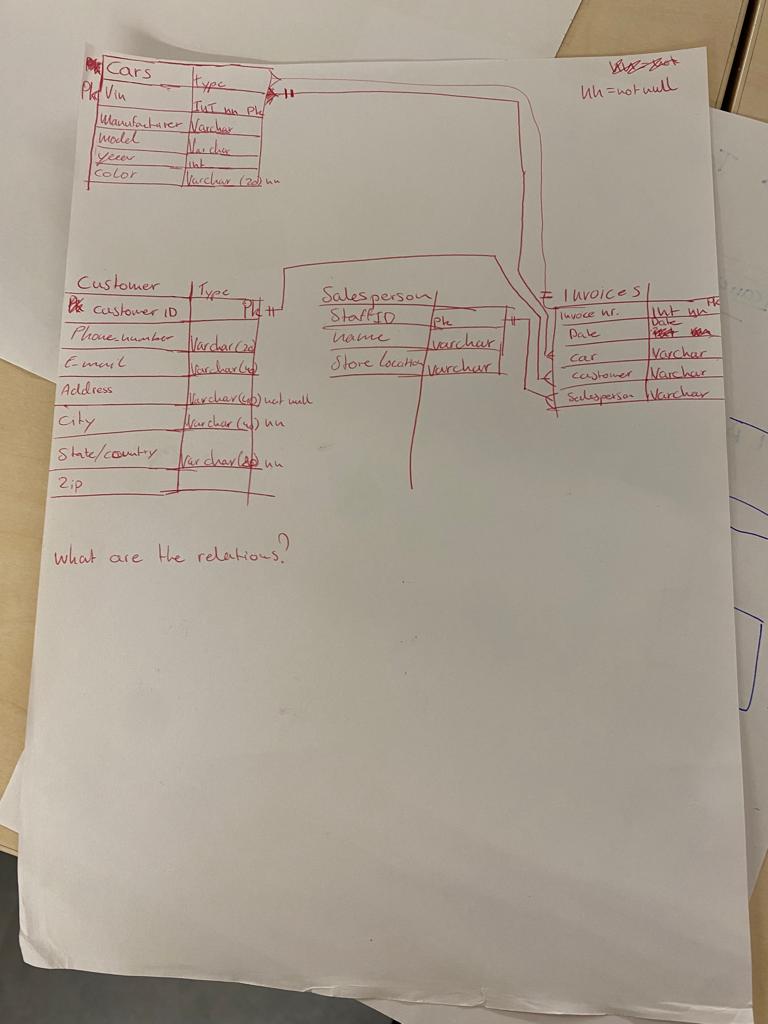 nn = not null
Cars Type
Pk Vin INT nn Pk
Manufacturer Varchar
model Varchar
year int
color Varchar (20) nn
Customer Type
customer ID Pk
Phonenumber Varchar(20)
E-mail Varchar(40)
Address Varchar(40) not null
City Varchar(40) nn
State/country Varchar(20) nn
Zip
Salesperson
StaffID Pk
name varchar
Store Location varchar
Invoices
Invoce nr. Int nn Pk
Date Date
car Varchar
customer Varchar
Salesperson Varchar
What are the relations?